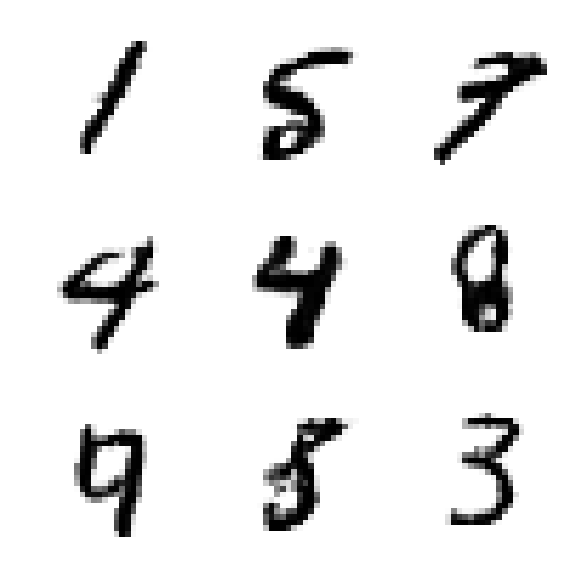 1 5 7
4 4 8
9 5 3